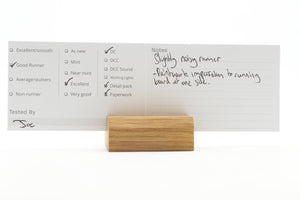 Excellent/smooth
Good Runner
Average/stutters
Non-runner
Tested By
Joe
As new
Mint
Near mint
Excellent
Very good
DC
DCC
DCC Sound
Working Lights
Detail pack
Paperwork
Notes
Slightly noisy runner
- Paintwork imperfection to running
board at one side.